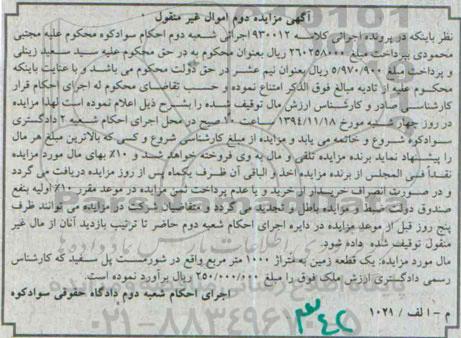 آگهی مزایده دوم اموال غیر منقول
نظر باینکه در پرونده اجرائی کلاسه ۹۳۰۰۱۲ اجرائی شعبه دوم احکام سوادکوه محکوم علیه مجتبی
محمودی پرداخت مبلغ ۲۶۰۲۵۸۰۰۰ ریال بعنوان محکوم به در حق محکوم علیه سید سعید زینلی
و پرداخت مبلغ ۵/۹۷۰/۹۰۰ ریال بعنوان نیم عشر در حق دولت محکوم می باشد و با عنایت باینکه
محکوم علیه از تادیه مبالغ فوق الذکر امتناع نموده و حسب تقاضای محکوم له اجرای احکام قرار
کارشناسی صادر و کارشناس ارزش مال توقیف شده را بشرح ذیل اعلام نموده است لهذا مزایده
در روز چهار شنبه مورخ ۱۳۹۴/۱۱/۱۸ ساعت ۱۰ صبح در محل اجرای احکام شعبه ۲ دادگستری
سوادکوه شروع و خاتمه می یابد و مزایده از مبلغ کارشناسی شروع و کسی که بالاترین مبلغ هر مال
را پیشنهاد نماید برنده مزایده تلقی و مال به وی فروخته خواهد شد و ۱۰٪ بهای مال مورد مزایده
نقداً فی المجلس از برنده مزایده اخذ و الباقی آن ظرف یکماه پس از روز مزایده دریافت می گردد
و در صورت انصراف خریدار از خرید و یا عدم پرداخت ثمن مزایده در موعد مقرر ۱۰٪ اولیه بنفع
صندوق دولت ضبط و مزایده باطل و تجدید می گردد و متقاضیان شرکت در مزایده می توانند ظرف
پنج روز قبل از موعد مزایده در دایره اجرای احکام شعبه دوم حاضر تا ترتیب بازدید آنان از مال غیر
منقول توقیف شده داده شود.
مال مورد مزایده: یک قطعه زمین به متراژ ۱۰۰۰ متر مربع واقع در شورمست پل سفید که کارشناس
رسمی دادگستری ارزش ملک فوق را مبلغ ۲۵۰/۰۰۰/۰۰۰ ریال برآورد نموده است.
اجرای احکام شعبه دوم دادگاه حقوقی سوادکوه
م - الف / ۱۰۲۱
۳۴۲
ParsNamadData
۰۲۱-۸۸۳۴۹۶۷۰-۵